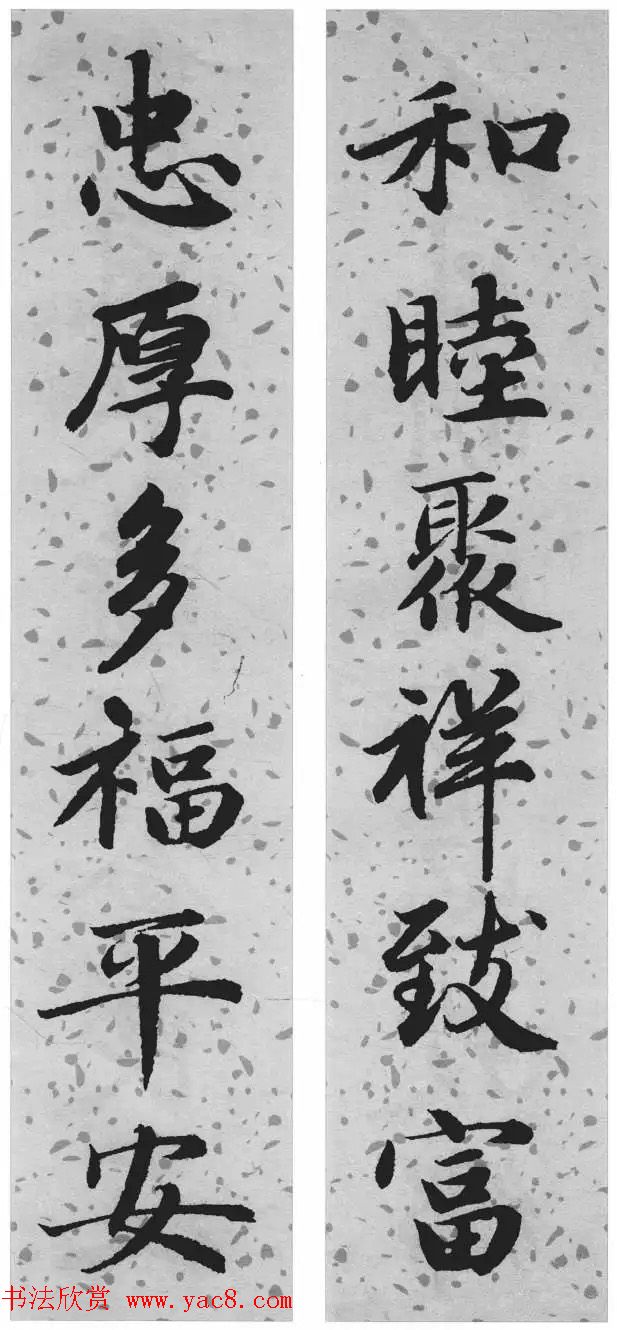 和睦聚祥致富
忠厚多福平安
书法欣赏 www.yac8.com